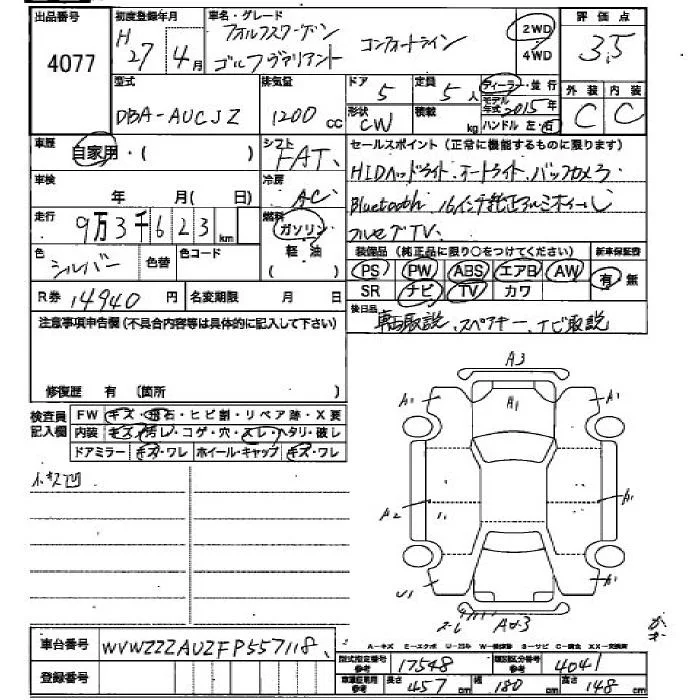 出品番号 初度登録年月 車名・グレード 評価点
4077 H27 4月 フォルフスワーゲン ゴルフヴァリアント コンフォートライン 2WD・4WD 3.5
型式 排気量 ドア 定員 ディーラー・並行 外装 内装
DBA-AUCJZ 1200cc 5 5人 モデル年式 2015年 C C
形状 CW 積載 kg ハンドル 左・右
車歴 自家用・( ) シフト FAT セールスポイント(正常に機能するものに限ります)
車検 年 月( 日) 冷房 AC HIDヘッドライト.オートライト.バックカメラ
走行 9万3千623km 燃料 ガソリン 軽・油 Bluetooth 16インチ純正アルミホイール
フルセグTV
色 シルバー 色替 色コード 装備品(純正品に限り○をつけてください) 新車保証書
PS PW ABS エアB AW 有・無
SR ナビ TV カワ
R券 14940円 名変期限 月 日
後日品 車両取説.スペアキー.ナビ取説
注意事項申告欄(不具合内容等は具体的に記入して下さい)
修復歴 有 (箇所 )
検査員記入欄 FW キズ・飛石・ヒビ割・リペア跡・X要
内装 キズ・汚レ・コゲ・穴・スレ・ハタリ・破レ
ドアミラー キズ・ワレ ホイール・キャップ キズ・ワレ
小キズ凹
A3
A1 A1 A1
A2 A1
U1 A1
A-キズ E-エクボ U-凹み W-補修跡 S-サビ C-腐食 XX-交換済
車台番号 WVWZZZAUZFP557118
登録番号
型式指定番号 参考 17548 類別区分番号 参考 4041
車検証記載 参考 長さ 457cm 幅 180cm 高さ 148cm